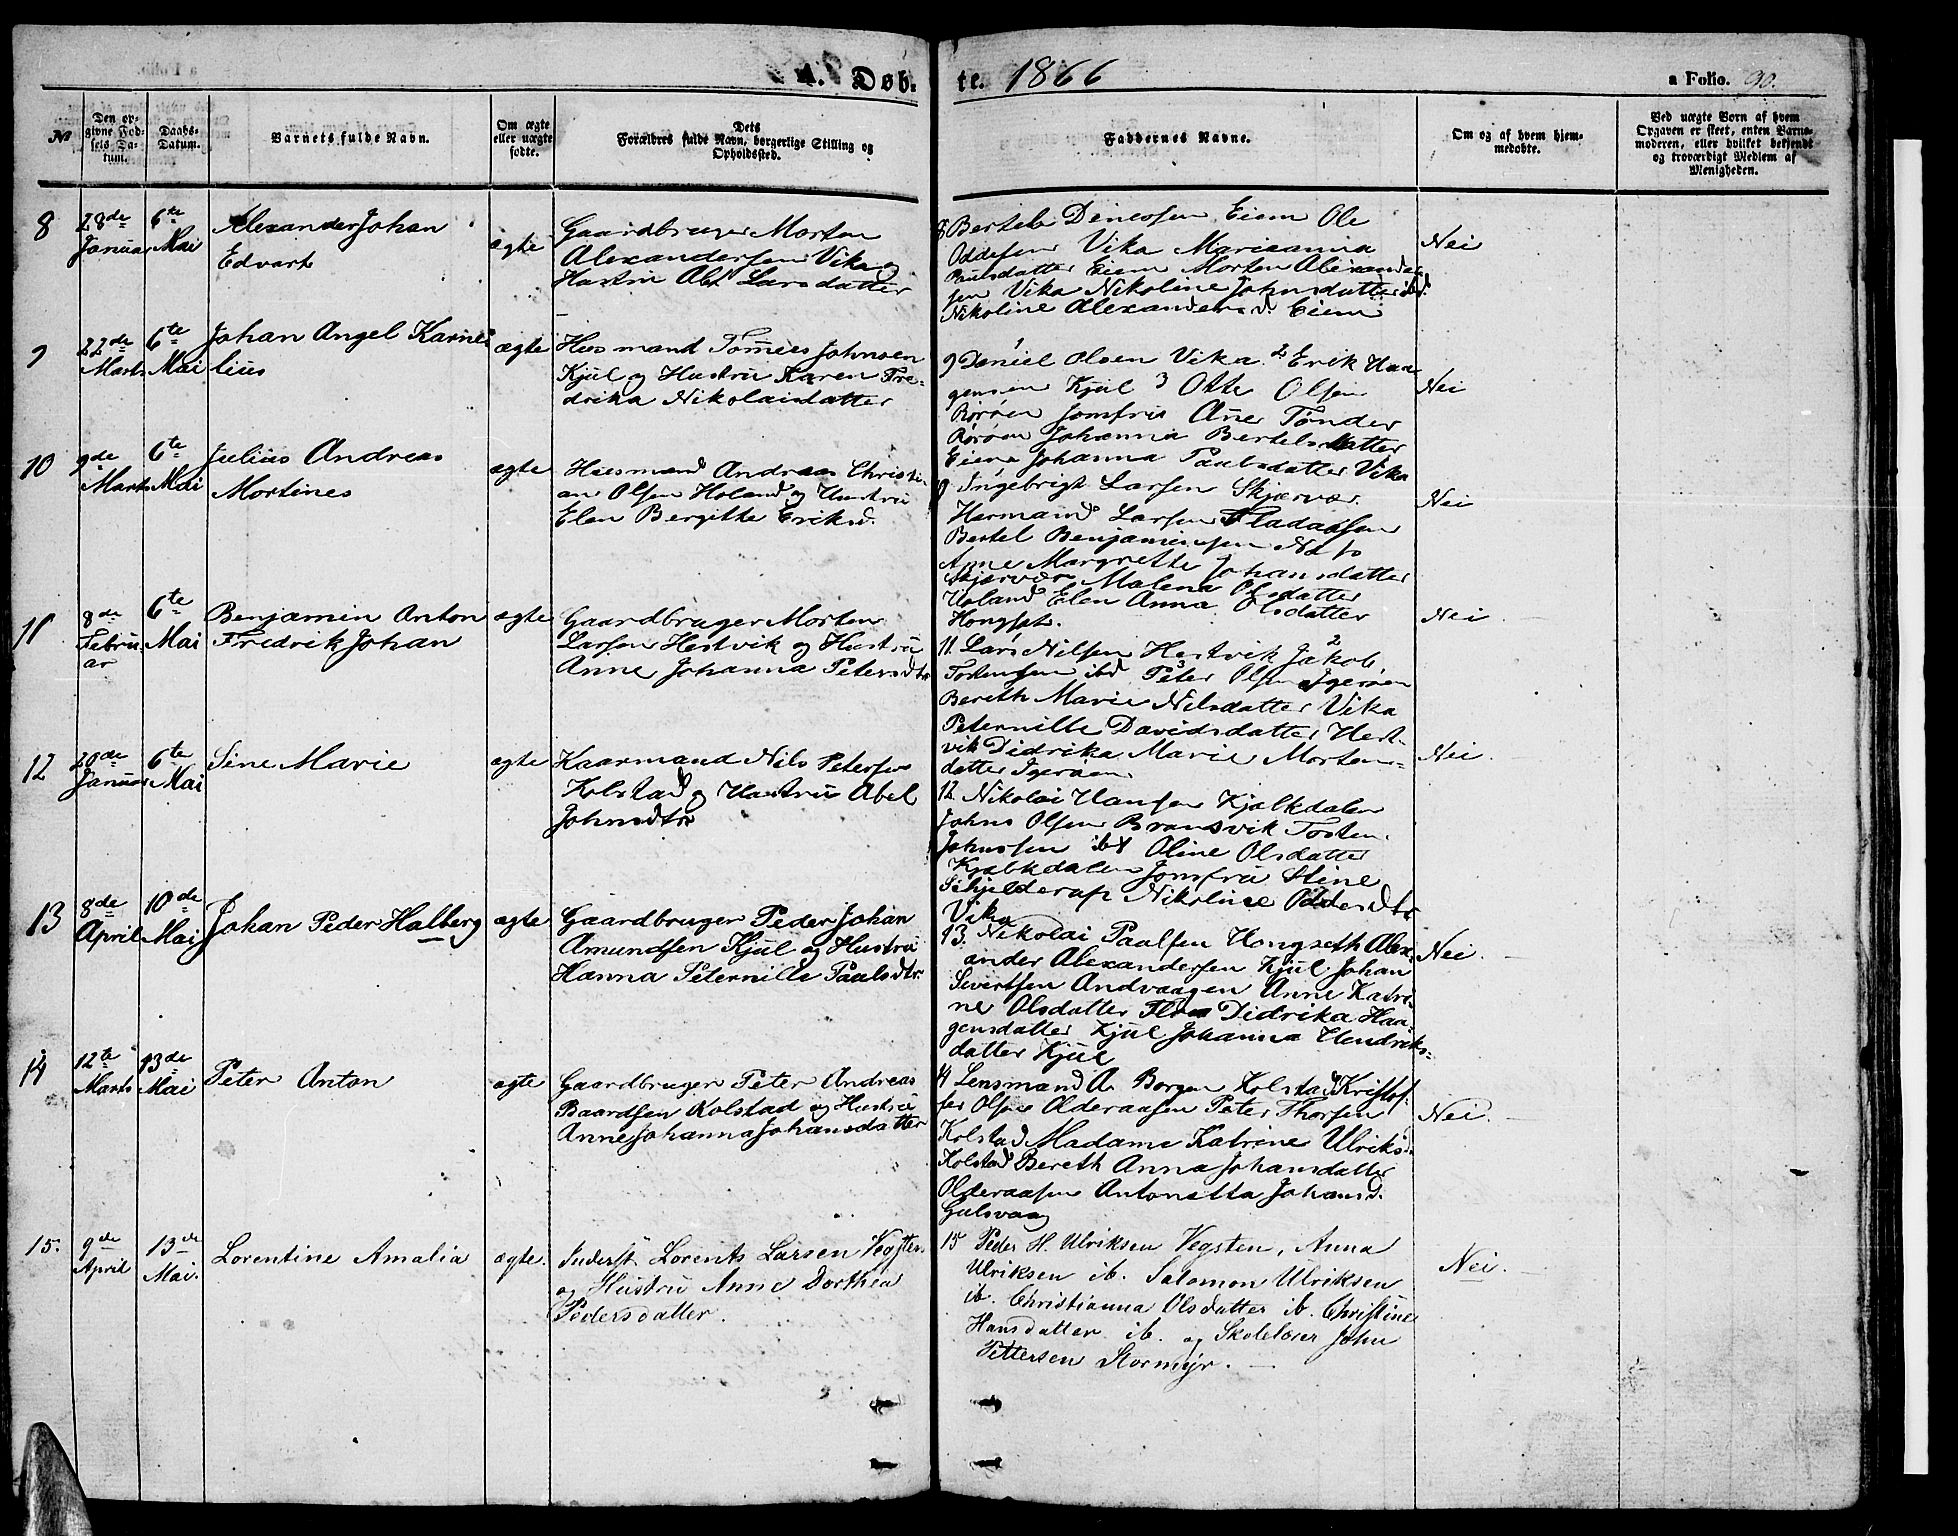 A. Døb-
te. 1866
a Folio. 90.
№
Den op-
givne Fød-
sels Da-
tum.
Daabs-
Datum.
Barnets fulde Navn.
Om ægte
eller uægte
fødte.
Dets
Forældres fulde Navn, borgerlige Stilling og
Opholdssted.
Faddernes Navne.
Om og af hvem hjem-
medøbte.
Ved uægte Børn af hvem
Opgaven er skeet, enten Barne-
moderen, eller hvilket bekjendt
og troværdigt Medlem af
Menigheden.
8
28de
Januar
6te
Mai
Alexander Johan
Edvart
ægte
Gaardbruger Morten
Alexandersen Vika og
Hustru Abel Larsdatter
8 Bertele Dineosen Eiem Ole
Oddesen Vika Marieanna
Paulsdatter Eiem Morten Alexander
sen Vika Nikoline Johnsdatter ibd.
Nikoline Alexandersd. Eiem
Nei
9
22de
Marts
6te
Mai
Johan Angel Karne
lius
ægte
Husmand Tømees Johnsen
Kjul og Hustru Karen Fre-
drika Nikolaisdatter
9 Daniel Olsen Vika 2 Erik Haa
gensen Kjul 3 Otte Olsen
Rørøen Jomfru Ane Tønder
Rørøen Johanna Bertelsdatter
Eiem Johanna Paulsdatter Vika
Nei
10
9de
Marts
6te
Mai
Julius Andreas
Mortines
ægte
Husmand Andreas Christi-
an Olsen Holand og Hustru
Elen Bergitte Eriksd.
Ingebrigt Larsen Skjærvær
Hermand Larsen
Bertel Benjaminsen
Anne Margrette Johansdatter
Skjærvær Malena Olsdatter
Holand Elen Anna Olsdatter
Hongset.
Nei
11
8de
Febru
ar
6te
Mai
Benjamin Anton
Fredrik Johan
ægte
Gaardbruger Morten
Larsen Hestvik og Hustru
Anne Johanna Petersdtr
11. Lars Nilsen Hestvik 2 Jakob
Tostensen ibd 3 Peter Olsen Igerøen
Bereth Marie Nilsdatter Vika
Peternille Davidsdatter Hest-
vik Didrika Marie Mortens-
datter Igerøen
Nei
12
20de
Januar
6te
Mai
Sine Marie
ægte
Kaarmand Nils Petersen
Kolstad og Hustru Abel
Johnsdtr
12. Nikolai Hansen Kjelkdalen
Johns Olsen Bransvik Tosten
Johnssen ibd Oline Olsdatter
Kjelkdalen Jomfru Stine
Schjelderup Nikoline Oddesdtr
Vika
Nei
13
8de
April
10de
Mai
Johan Peder Halberg
ægte
Gaardbruger Peder Johan
Amundsen Kjul og Hustru
Hanna Peternille Paulsdtr.
13. Nikolai Paalsen Hongseth Alex-
ander Alexandersen Kjul Johan
Sivertsen Andvaagen Anne Katri
ne Olsdatter Floa Didrika Haa-
gensdatter Kjul Johanna Hendriks-
datter Kjul
Nei.
14
12te
Marts
13de
Mai
Peter Anton
ægte
Gaardbruger Peter Andreas
Baardsen Kolstad og Hustru
Anne Johanna Johansdatter
14 Lensmand A. Borgen Kolstad Kristof-
fer Olsen Olderaasen Peter Thorsen
Kolstad Madame Katrine Ulriks
Kolstad Bereth Anna Johansdatter
Olderaasen Antonetta Johansd.
Gulsvaag
Nei.
15.
9de
April
13de
Mai.
Lorentine Amalia
ægte.
Inderst. Lorents Larsen Vegsten
og Hustru Anne Dorthea
Pedersdatter.
15 Peder H. Ulriksen Vegsten, Anna
Ulriksen ib. Salomon Ulriksen
ib. Christianna Olsdatter ib. Christine
Hansdatter ib. og Skolelærer John
Pettersen Stormyr.
Nei.